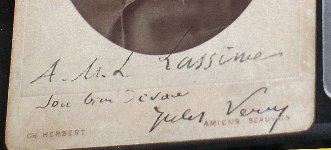 A. M. L. Lassime
Son bien dévoué
Jules Verne
CH HERBERT AMIENS BEAUVAIS